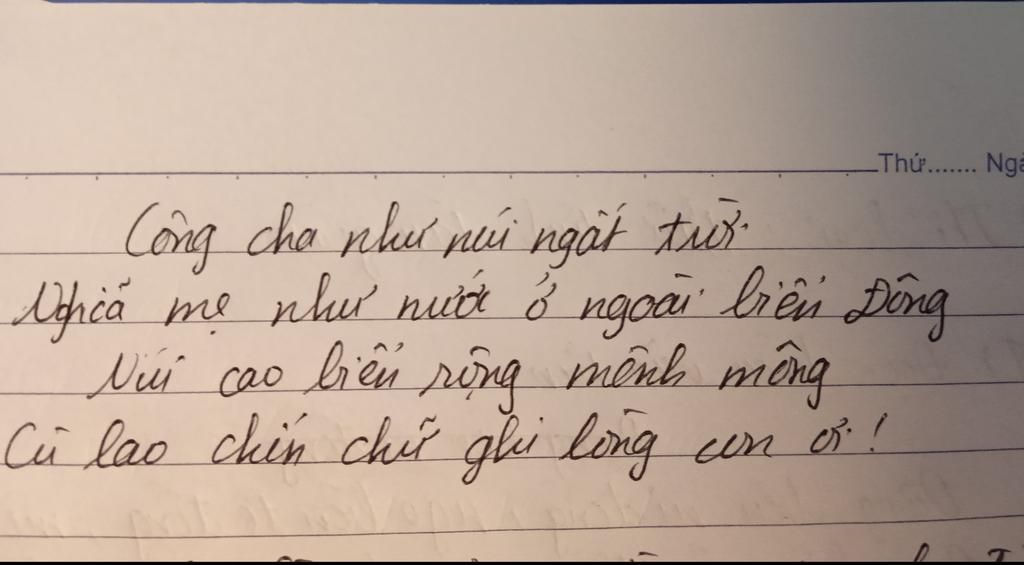 Thứ....... Ngà
Công cha như núi ngất trời
Nghĩa mẹ như nước ở ngoài biển Đông
Núi cao biển rộng mênh mông
Cù lao chín chữ ghi lòng con ơi!